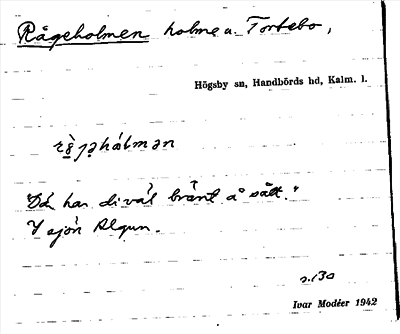 Rågeholmen holme u. Tortebo,
Högsby sn, Handbörds hd, Kalm. l.
"Dá har di vál bränt å sått."
I sjön Algun.
s.130
Ivar Modéer 1942